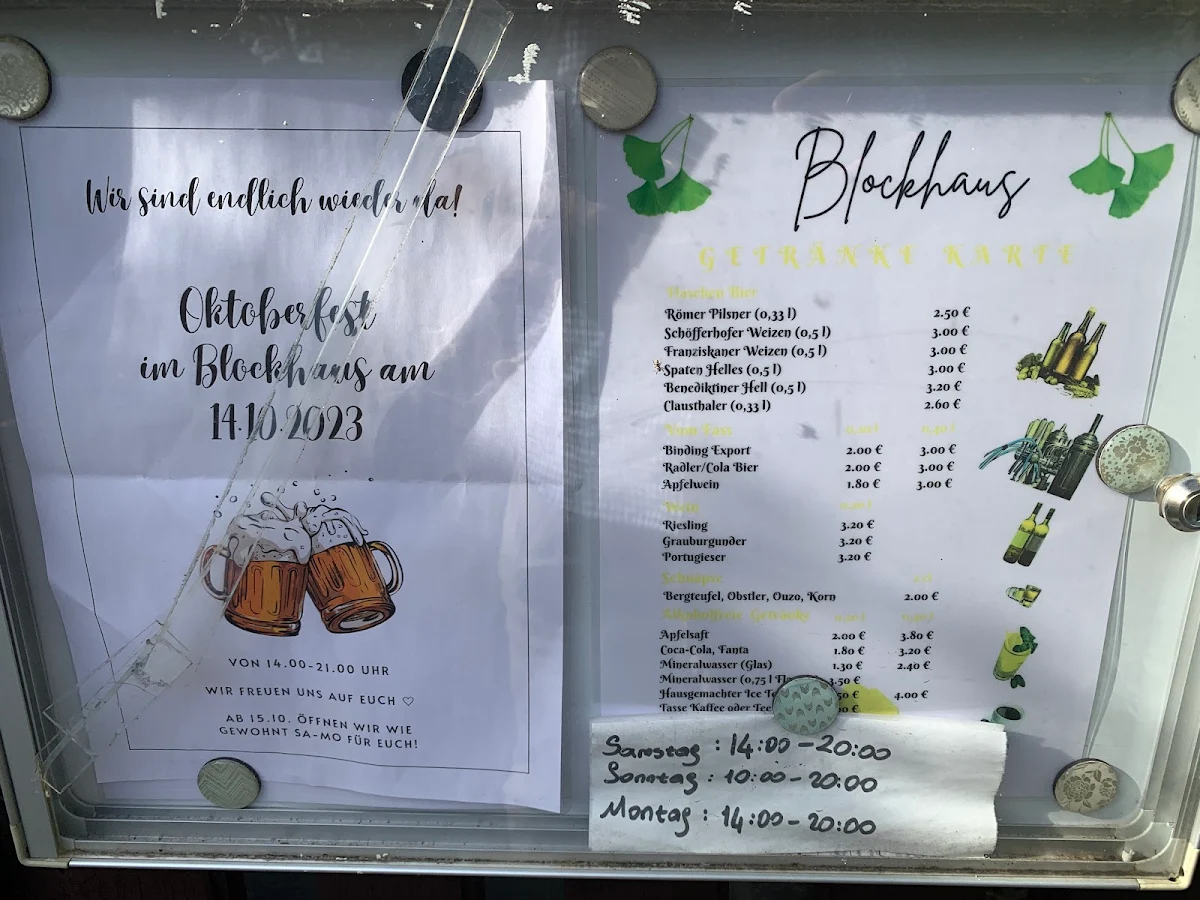 Wir sind endlich wieder da!
Oktoberfest
im Blockhaus am
14.10.2023
VON 14.00-21.00 UHR
WIR FREUEN UNS AUF EUCH ♡
AB 15.10. ÖFFNEN WIR WIE
GEWOHNT SA-MO FÜR EUCH!
Blockhaus
GETRÄNKE KARTE
Flaschen Bier
Römer Pilsner (0,33 l) 2.50 €
Schöfferhofer Weizen (0,5 l) 3.00 €
Franziskaner Weizen (0,5 l) 3.00 €
Spaten Helles (0,5 l) 3.00 €
Benediktiner Hell (0,5 l) 3.20 €
Clausthaler (0,33 l) 2.60 €
Vom Fass 0,20 l 0,40 l
Binding Export 2.00 € 3.00 €
Radler/Cola Bier 2.00 € 3.00 €
Apfelwein 1.80 € 3.00 €
Wein 0,20 l
Riesling 3.20 €
Grauburgunder 3.20 €
Portugieser 3.20 €
Schnäpse 2 cl
Bergteufel, Obstler, Ouzo, Korn 2.00 €
Alkoholfreie Getränke 0,20 l 0,40 l
Apfelsaft 2.00 € 3.80 €
Coca-Cola, Fanta 1.80 € 3.20 €
Mineralwasser (Glas) 1.30 € 2.40 €
Mineralwasser (0,75 l 3.50 €
Hausgemachter Ice 4.00 €
Tasse Kaffee oder Tee
Samstag : 14:00 - 20:00
Sonntag : 10:00 - 20:00
Montag : 14:00 - 20:00